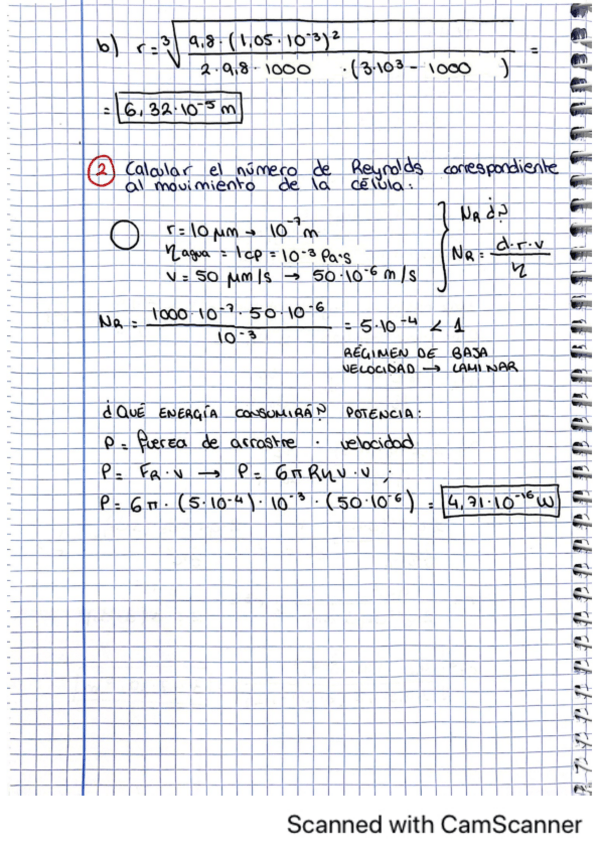 b) r = ∛ 9,8 · (1,05 · 10⁻³)² / 2 · 9,8 · 1000 · (3·10³ - 1000 ) =
= 6,32·10⁻⁵ m
2 Calcular el número de Reynolds correspondiente
al movimiento de la célula:
r = 10 μm → 10⁻⁷ m
η agua = 1 cp = 10⁻³ Pa·s
v = 50 μm/s → 50·10⁻⁶ m/s
NR ¿?
NR = d·r·v / η
NR = 1000·10⁻⁷·50·10⁻⁶ / 10⁻³ = 5·10⁻⁴ < 1
RÉGIMEN DE BAJA
VELOCIDAD → LAMINAR
¿QUÉ ENERGÍA CONSUMIRÁ? POTENCIA:
P = fuerza de arrastre · velocidad
P = FR · v → P = 6πRηv · v ;
P = 6π · (5·10⁻⁴) · 10⁻³ · (50·10⁻⁶) = 4,71·10⁻¹⁶ W
Scanned with CamScanner